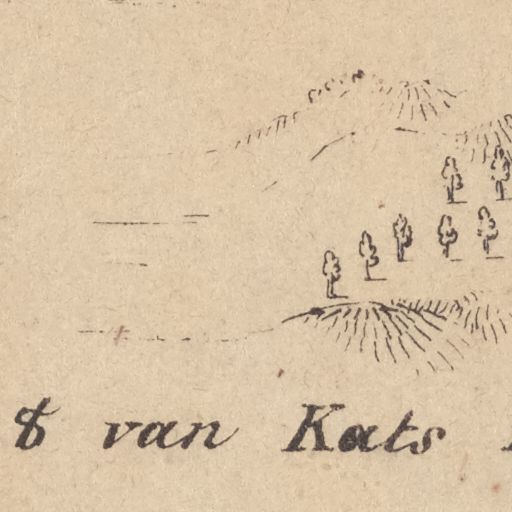 van Kats